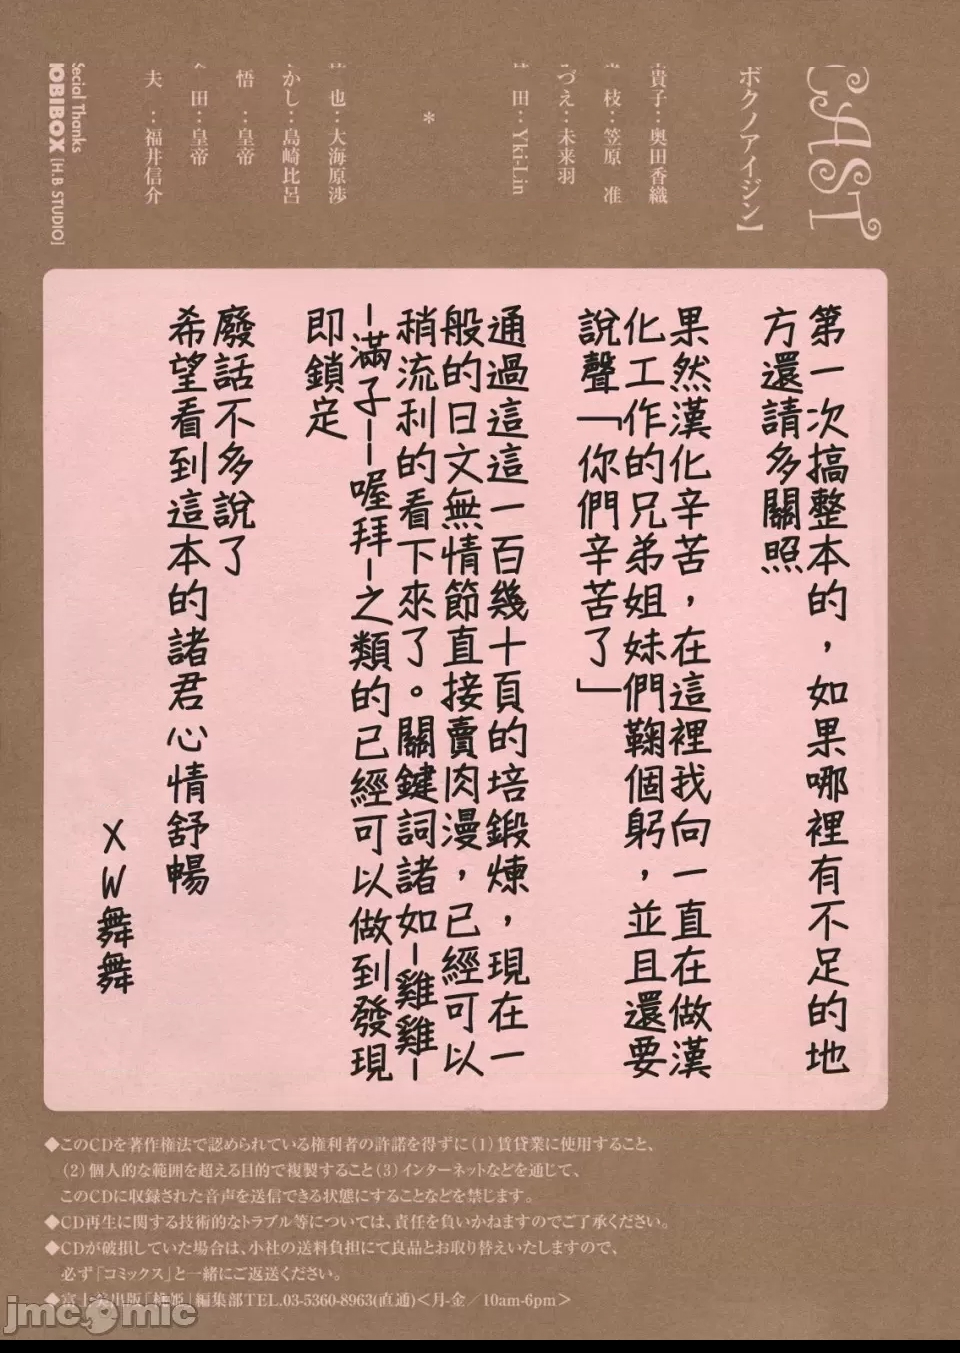 CAST
ボクノアイジン】
貴子：奥田香織
枝：笠原　准
づえ：未来羽
田：Yki-Lin
＊
也：大海原渉
かし：島崎比呂
悟：皇帝
田：皇帝
夫：福井信介
Special Thanks
HOBIBOX [H.B STUDIO]
第一次搞整本的，如果哪裡有不足的地
方還請多關照
果然漢化辛苦，在這裡我向一直在做漢
化工作的兄弟姐妹們鞠個躬，並且還要
說聲「你們辛苦了」
通過這這一百幾十頁的培鍛煉，現在一
般的日文無情節直接賣肉漫，已經可以
稍流利的看下來了。關鍵詞諸如–雞雞–
–滿子––喔拜–之類的已經可以做到發現
即鎖定
廢話不多說了
希望看到這本的諸君心情舒暢
XW舞舞
◆このCDを著作権法で認められている権利者の許諾を得ずに（1）賃貸業に使用すること、
（2）個人的な範囲を超える目的で複製すること（3）インターネットなどを通じて、
このCDに収録された音声を送信できる状態にすることなどを禁じます。
◆CD再生に関する技術的なトラブル等については、責任を負いかねますのでご了承ください。
◆CDが破損していた場合は、小社の送料負担にて良品とお取り替えいたしますので、
必ず「コミックス」と一緒にご返送ください。
◆富士美出版「桃姫」編集部TEL.03-5360-8963(直通)＜月-金／10am-6pm＞
jmcomic